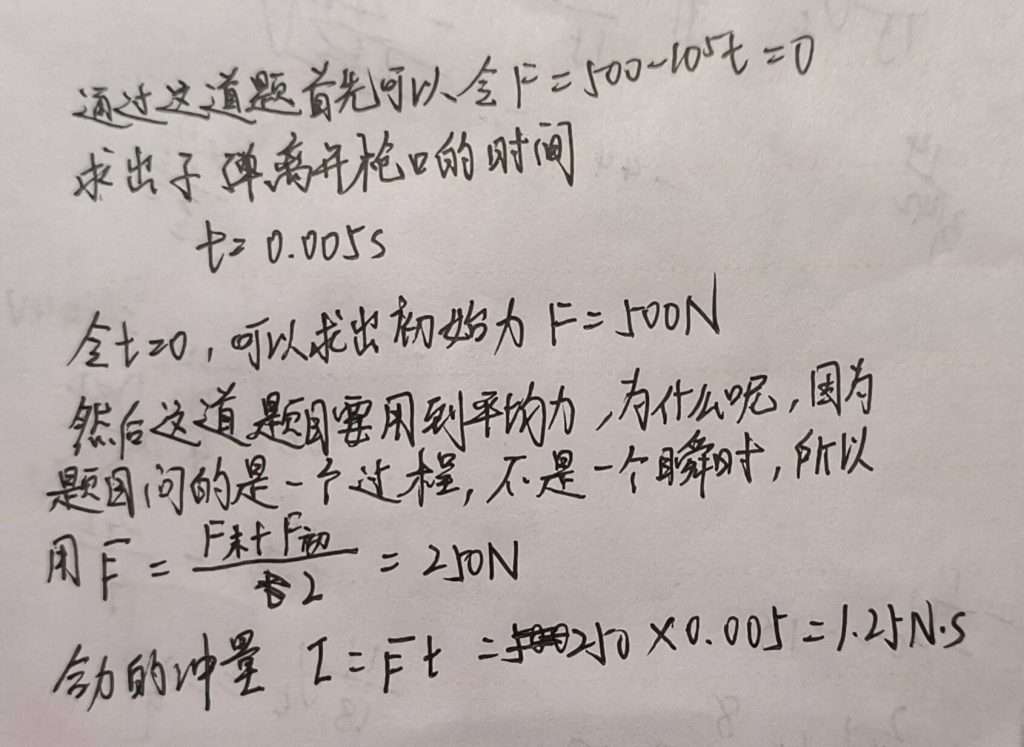 通过这道题首先可以令 F=500-10⁵t=0
求出子弹离开枪口的时间
t=0.005s
令t=0,可以求出初始力 F=500N
然后这道题目要用到平均力,为什么呢,因为
题目问的是一个过程,不是一个瞬时,所以
用 F̄ = (F末+F初)/2 = 250N
合力的冲量 I=F̄t =250×0.005=1.25N·s